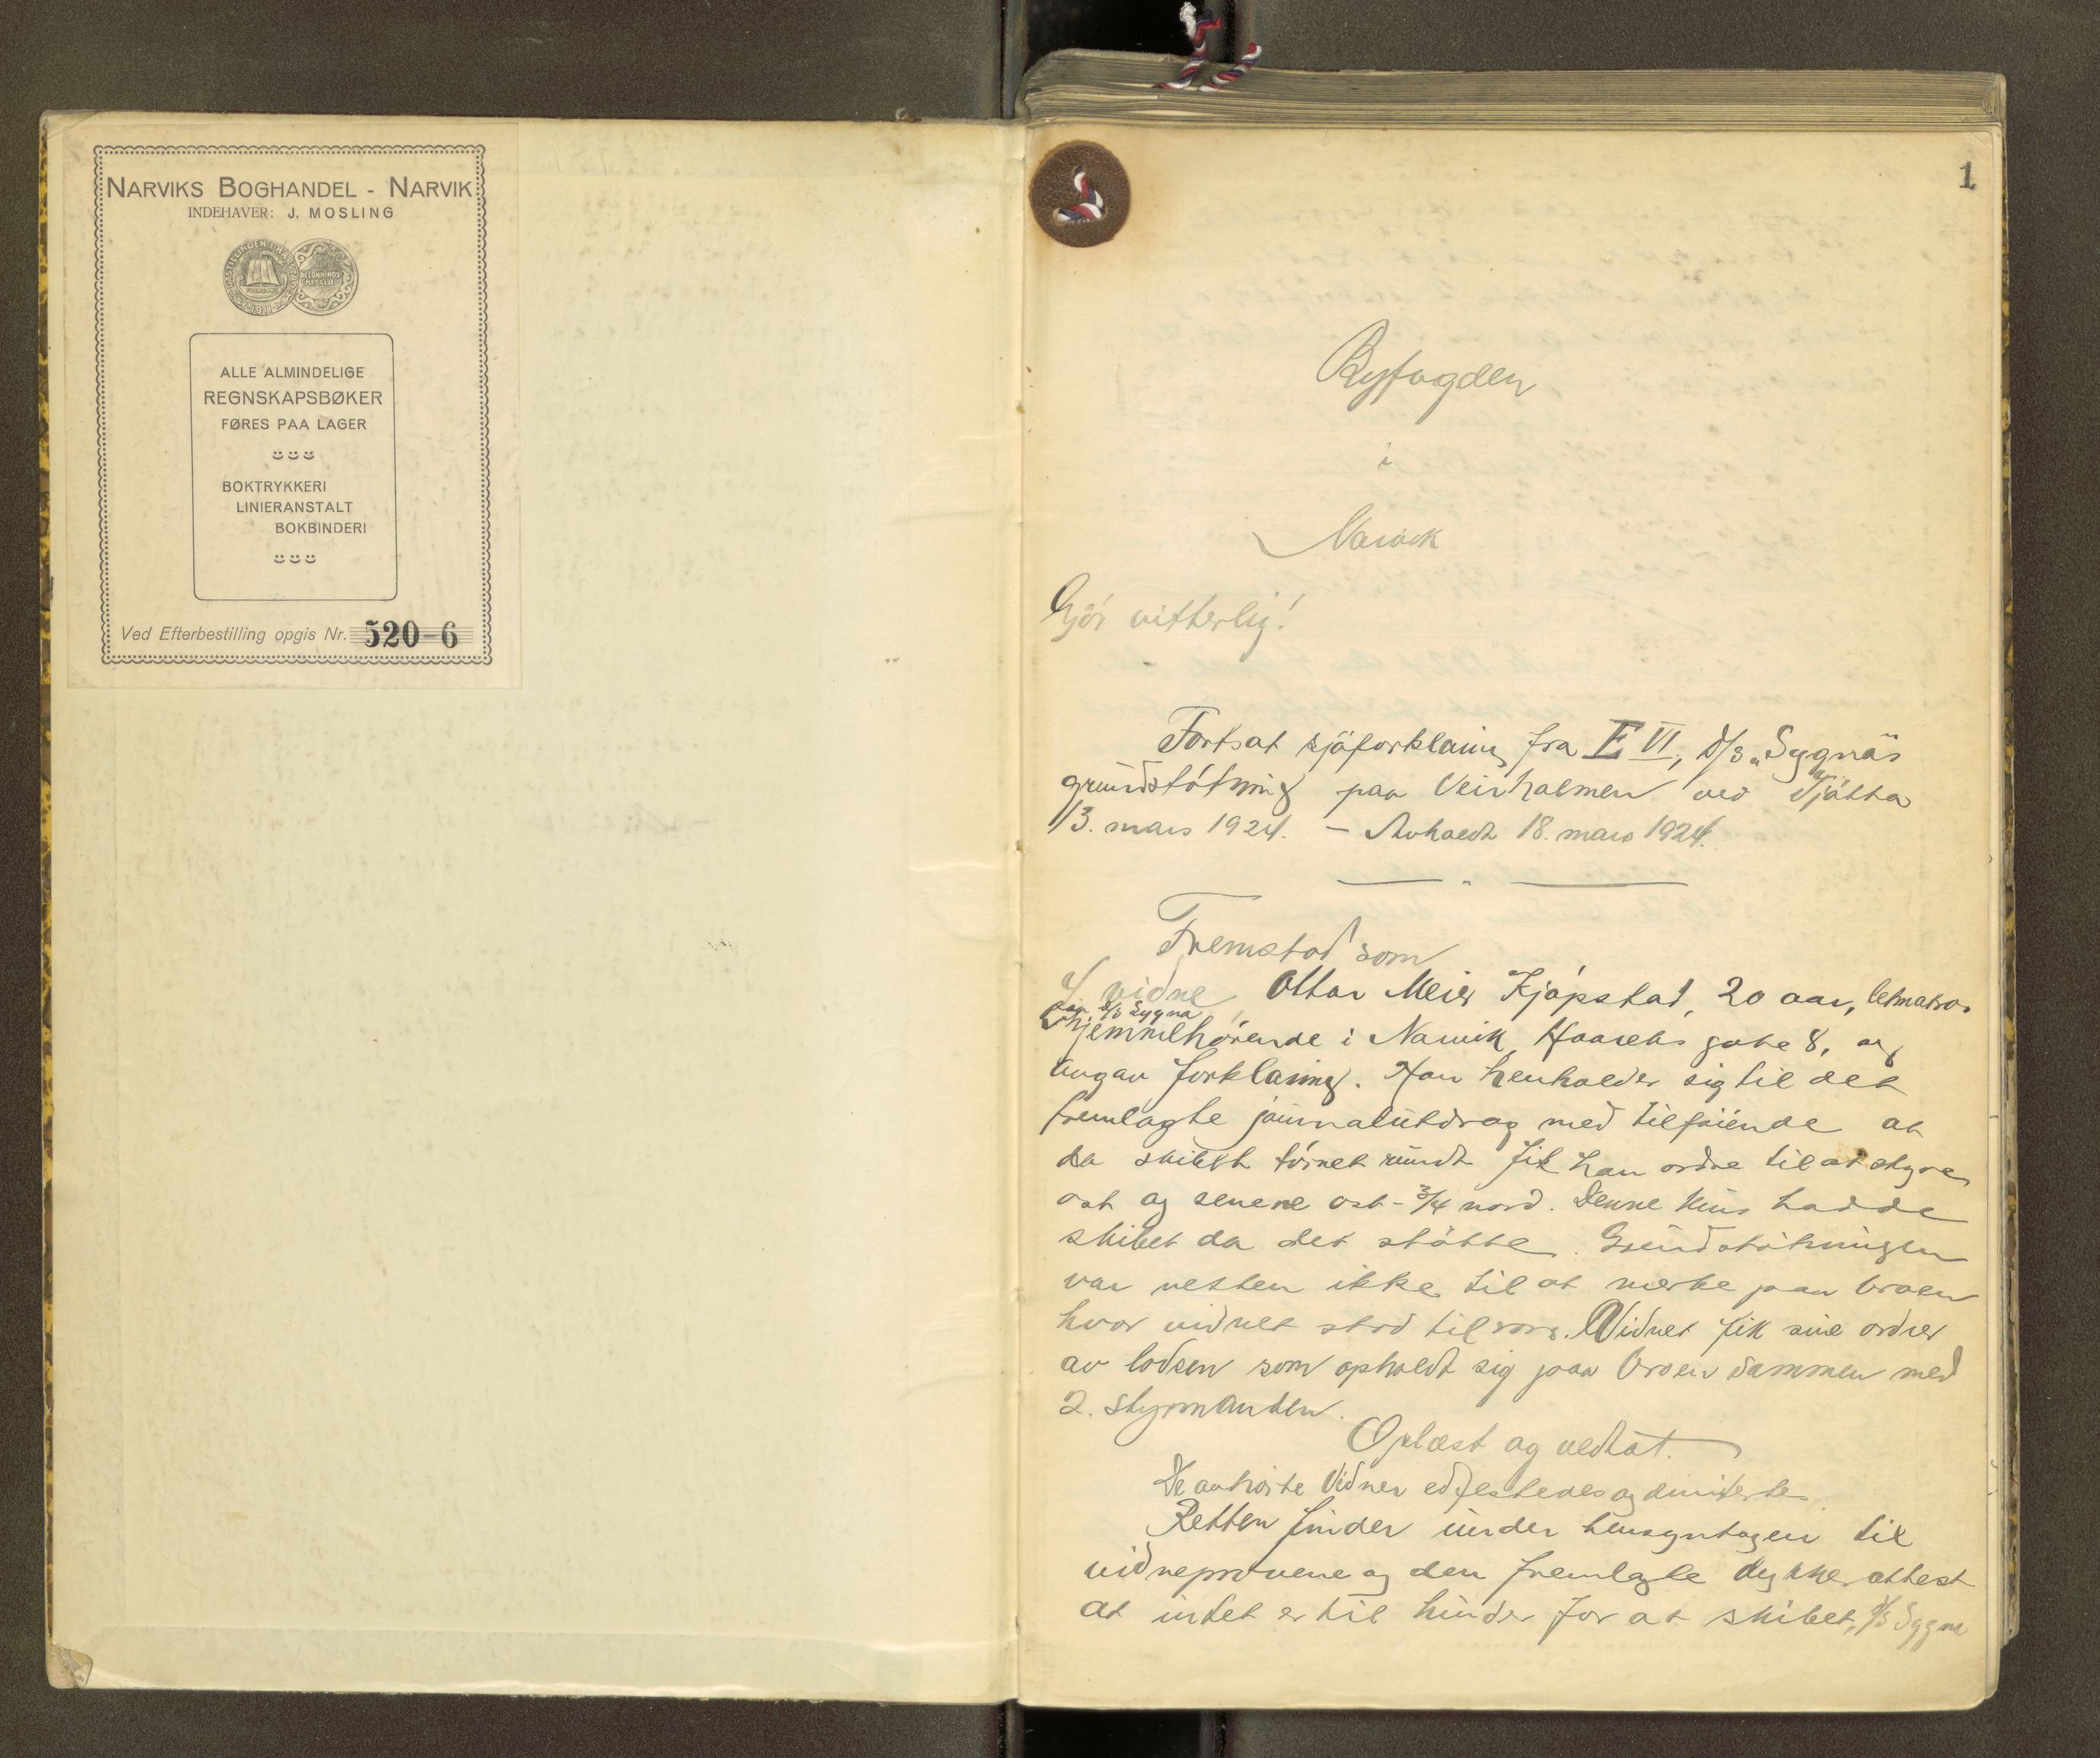 NARVIKS BOGHANDEL - NARVIK
INDEHAVER: J. MOSLING
ALLE ALMINDELIGE
REGNSKAPSBØKER
FØRES PAA LAGER
BOKTRYKKERI
LINIERANSTALT
BOKBINDERI
Ved Efterbestilling opgis Nr. 520-6
1
Byfogden
i
Narvik
Gjör vitterlig!
Fortsat sjöforklaring fra E VI, d/s "Sygnas
grundstötning paa Veirholmen ved Tjötta
13. mars 1924. - Avholdt 18. mars 1924.
Fremstod som
vidne Ottar Meier Kjöpstad, 20 aar, letmatros
paa d/s Sygna
hjemmehörende i Narvik, Haareks gate 8, og
avgav forklaring. Han henholder sig til det
fremlagte journalutdrag med tilföiende at
da skibet törnet rundt fik han ordre til at styre
ost og senere ost - 3/4 nord. Denne kurs hadde
skibet da det stötte. Grundstötningen
var nesten ikke til at merke paa broen
hvor vidnet stod tilrors. Vidnet fik sine ordrer
av lodsen som opholdt sig paa broen sammen med
2. styrmanden.
Oplæst og vedtat.
De avhörte vidner edfestedes og dimitertes.
Retten finder under hensyntagen til
vidneprovene og den fremlagte dykkerattest
at intet er til hinder for at skibet, d/s Sygna